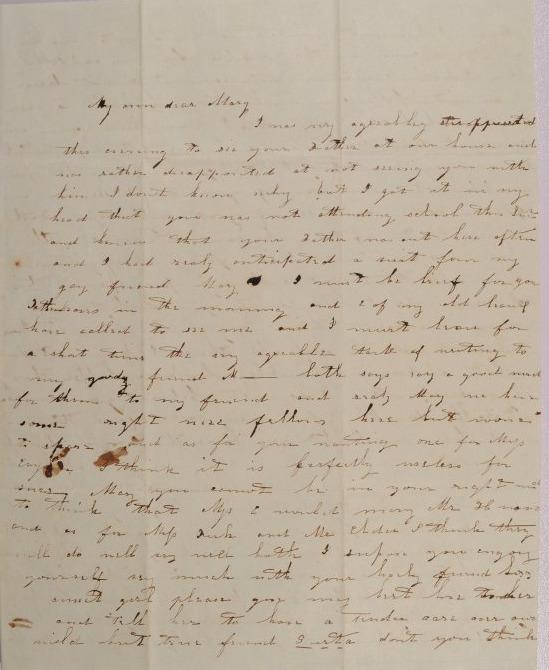 My own dear Mary
I was very agreeably disappointed
this evening to see your Father at our house and
was rather disappointed at not seeing you with
him I dont know why but I got it in my
head that you was not attending school this
and knows that your Father was out here often
and I had realy anticipated a visit from my
gay friend Mary I must be brief for you
in the morning and 2 of my old
have called to see me and I must leave for
a short time the very agreeable task of writing to
my friend M both says say a good
for them to my friend and realy May we have
some right nice fellows here but none
to spare and as for your one for Miss
I think it is perfectly useless for
May you cannot be in your right
to think that Miss E would marry Mr
and as for Miss and Mr Elder I think they
will do well very well both I supose you enjoy
yourself very much with your lively friend
sweet girl please give my best love to her
and tell her to have a tender care over our
wild but true friend dont you think